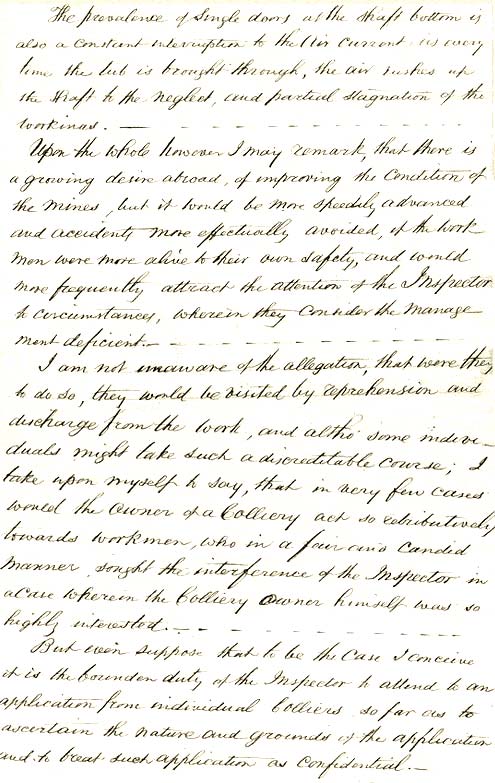 The prevalence of Single doors at the Shaft bottom is
also a constant interruption to the Air Current as every
time the tub is brought through, the air rushes up
the Shaft to the neglect, and partial Stagnation of the
workings. —
Upon the whole however I may remark, that there is
a growing desire abroad, of improving the Condition of
the Mines, but it would be more speedily advanced
and accidents more effectually avoided, if the Work
men were more alive to their own safety, and would
more frequently attract the attention of the Inspector
to circumstances, wherein they consider the Manage
ment deficient. —
I am not unaware of the allegation, that were they
to do so, they would be visited by reprehension and
discharge from the work, and altho' some indivi-
duals might take such a discreditable course; I
take upon myself to say, that in very few cases
would the Owner of a Colliery act so retributively
towards workmen, who in a fair and candid
manner sought the interference of the Inspector in
a Case wherein the Colliery Owner himself was so
highly interested. —
But even suppose that to be the Case I conceive
it is the bounden duty of the Inspector to attend to an
application from individual Colliers so far as to
ascertain the nature and grounds of the application
and to treat such application as Confidential. —